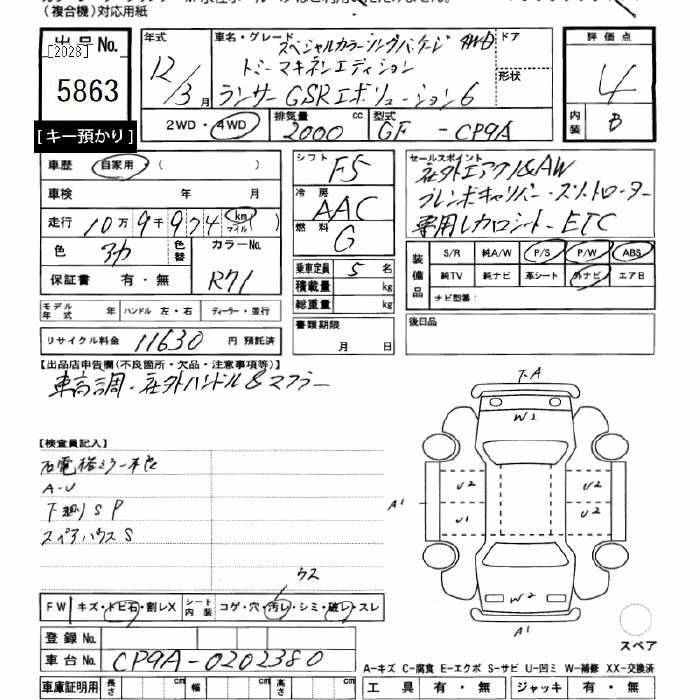 (複合機)対応用紙
出品No.
[2028]
5863
[キー預かり]
年式
12/3月
車名・グレード
スペシャルカラーリングパッケージ 4WD
トミーマキネンエディション
ランサーGSRエボリューション6
ドア
形状
2WD・4WD
排気量
2000 cc
型式
GF - CP9A
評価点
4
内装
B
車歴 自家用 ( )
車検 年 月
走行 10万9千974 km マイル
色 アカ 色替 カラーNo.
R71
保証書 有・無
モデル年式 年 ハンドル 左・右 ディーラー・並行
リサイクル料金 11630 円 預託済
シフト F5
冷房 AAC
燃料 G
乗車定員 5 名
積載量 kg
総重量 kg
書類期限
月 日
セールスポイント
社外エアクリ&AW
ブレンボキャリパー・スリットローター
専用レカロシート・ETC
装備品
S/R 純A/W P/S P/W ABS
純TV 純ナビ 革シート 外ナビ エアB
ナビ型番:
後日品
【出品店申告欄(不良箇所・欠品・注意事項等)】
車高調・社外ハンドル&マフラー
【検査員記入】
右電格ミラー不良
A-U
下廻りSP
スペアハウスS
ウス
FW キズ・トビ石・割レX シート内装 コゲ・穴・汚レ・シミ・破レ・スレ
登録No.
車台No. CP9A-0202380
車庫証明用 長さ cm 幅 cm 高さ cm
下A
W2
A1
U2
U1
U2
U2
W2
A1
スペア
A-キズ C-腐食 E-エクボ S-サビ U-凹ミ W-補修 XX-交換済
工具 有・無 ジャッキ 有・無